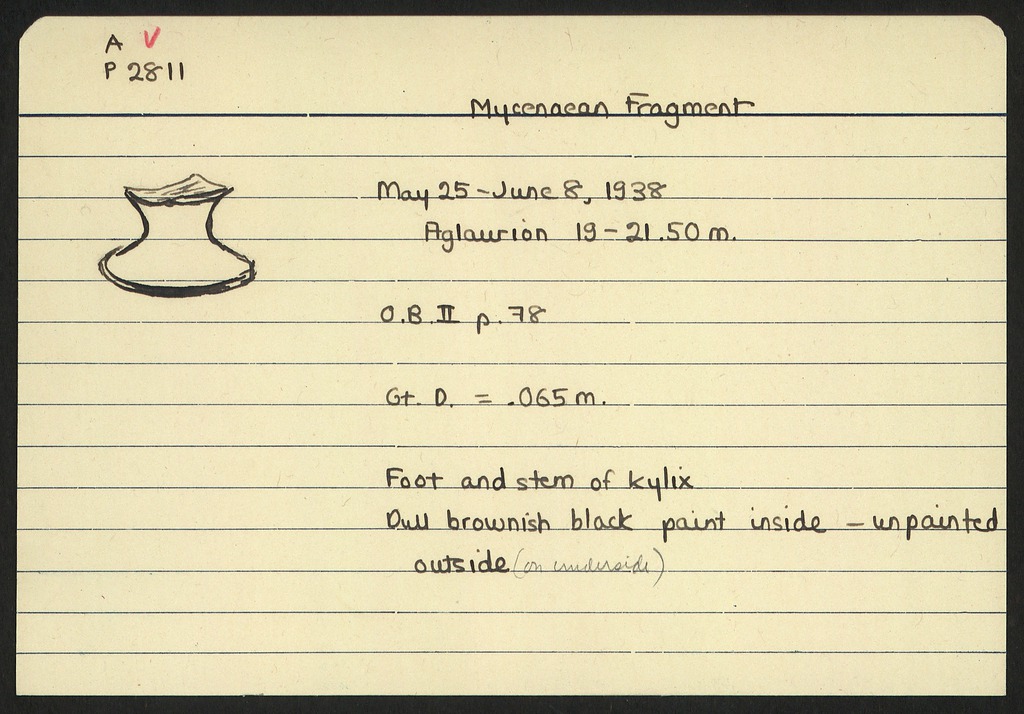 A V
P 2811
Mycenaean Fragment
May 25 - June 8, 1938
Aglaurion 19 - 21.50 m.
O.B. II p. 78
Gt. D. = .065 m.
Foot and stem of kylix
Dull brownish black paint inside - unpainted
outside (on underside)